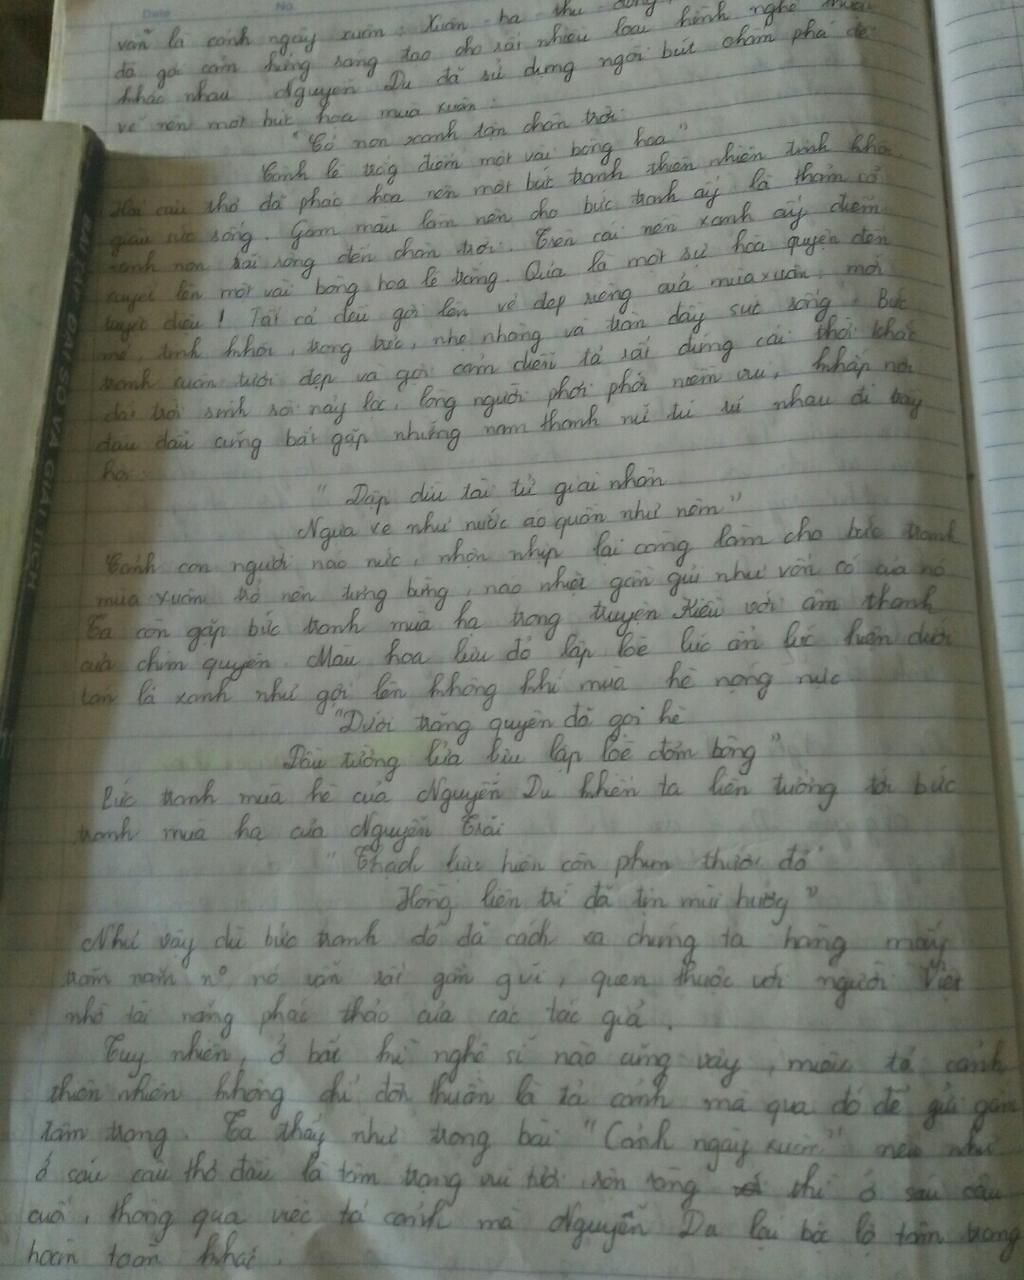 văn là cảnh ngày xuân. Xuân hạ thu đông
đã gợi cảm hứng sáng tạo cho rất nhiều loại hình nghệ thuật
khác nhau Nguyễn Du đã sử dụng ngòi bút chấm phá để
vẽ nên một bức họa mùa xuân:
"Cỏ non xanh tận chân trời
Cành lê trắng điểm một vài bông hoa"
Hai câu thơ đã phác họa nên một bức tranh thiên nhiên tinh khôi
giàu sức sống. Gam màu làm nền cho bức tranh ấy là thảm cỏ
xanh non trải rộng đến chân trời. Trên cái nền xanh ấy điểm
xuyết lên một vài bông hoa lê trắng. Quả là một sự hòa quyện đến
tuyệt diệu! Tất cả đều gợi lên vẻ đẹp riêng của mùa xuân: mới
mẻ, tinh khôi, trong trẻo, nhẹ nhàng và tràn đầy sức sống". Bức
tranh xuân tươi đẹp và gợi cảm diễn tả rất đúng cái thời khắc
đất trời sinh sôi nảy lộc, lòng người phơi phới niềm vui, khắp nơi
đâu đâu cũng bắt gặp những nam thanh nữ tú nhau đi trẩy
hội
"Dập dìu tài tử giai nhân
Ngựa xe như nước áo quần như nêm"
Cảnh con người náo nức, nhộn nhịp lại càng làm cho bức tranh
mùa xuân trở nên tưng bừng, náo nhiệt gần gũi như vốn có của nó
Ta còn gặp bức tranh mùa hạ trong truyện Kiều với âm thanh
của chim quyên. Màu hoa lựu đỏ lập lòe lúc ẩn lúc hiện dưới
tán lá xanh như gợi lên không khí mùa hè nóng nực
"Dưới trăng quyên đã gọi hè
Đầu tường lửa lựu lập lòe đơm bông"
Bức tranh mùa hè của Nguyễn Du khiến ta liên tưởng tới bức
tranh mùa hạ của Nguyễn Trãi
"Thạch lựu hiên còn phun thức đỏ
Hồng liên trì đã tịn mùi hương"
Như vậy dù bức tranh đó đã cách xa chúng ta hàng mấy
trăm năm nó vẫn rất gần gũi, quen thuộc với người Việt
nhờ tài năng phác thảo của các tác giả.
Tuy nhiên, ở bất kì nghệ sĩ nào cũng vậy, miêu tả cảnh
thiên nhiên không chỉ đơn thuần là tả cảnh mà qua đó để gửi gắm
tâm trạng. Ta thấy như trong bài "Cảnh ngày xuân" nếu như
ở sáu câu thơ đầu là tâm trạng vui tươi rộn ràng thì ở sáu câu
cuối, thông qua việc tả cảnh mà Nguyễn Du lại bộc lộ tâm trạng
hoàn toàn khác.
BÀI TẬP ĐẠI SỐ VÀ GIẢI TÍCH